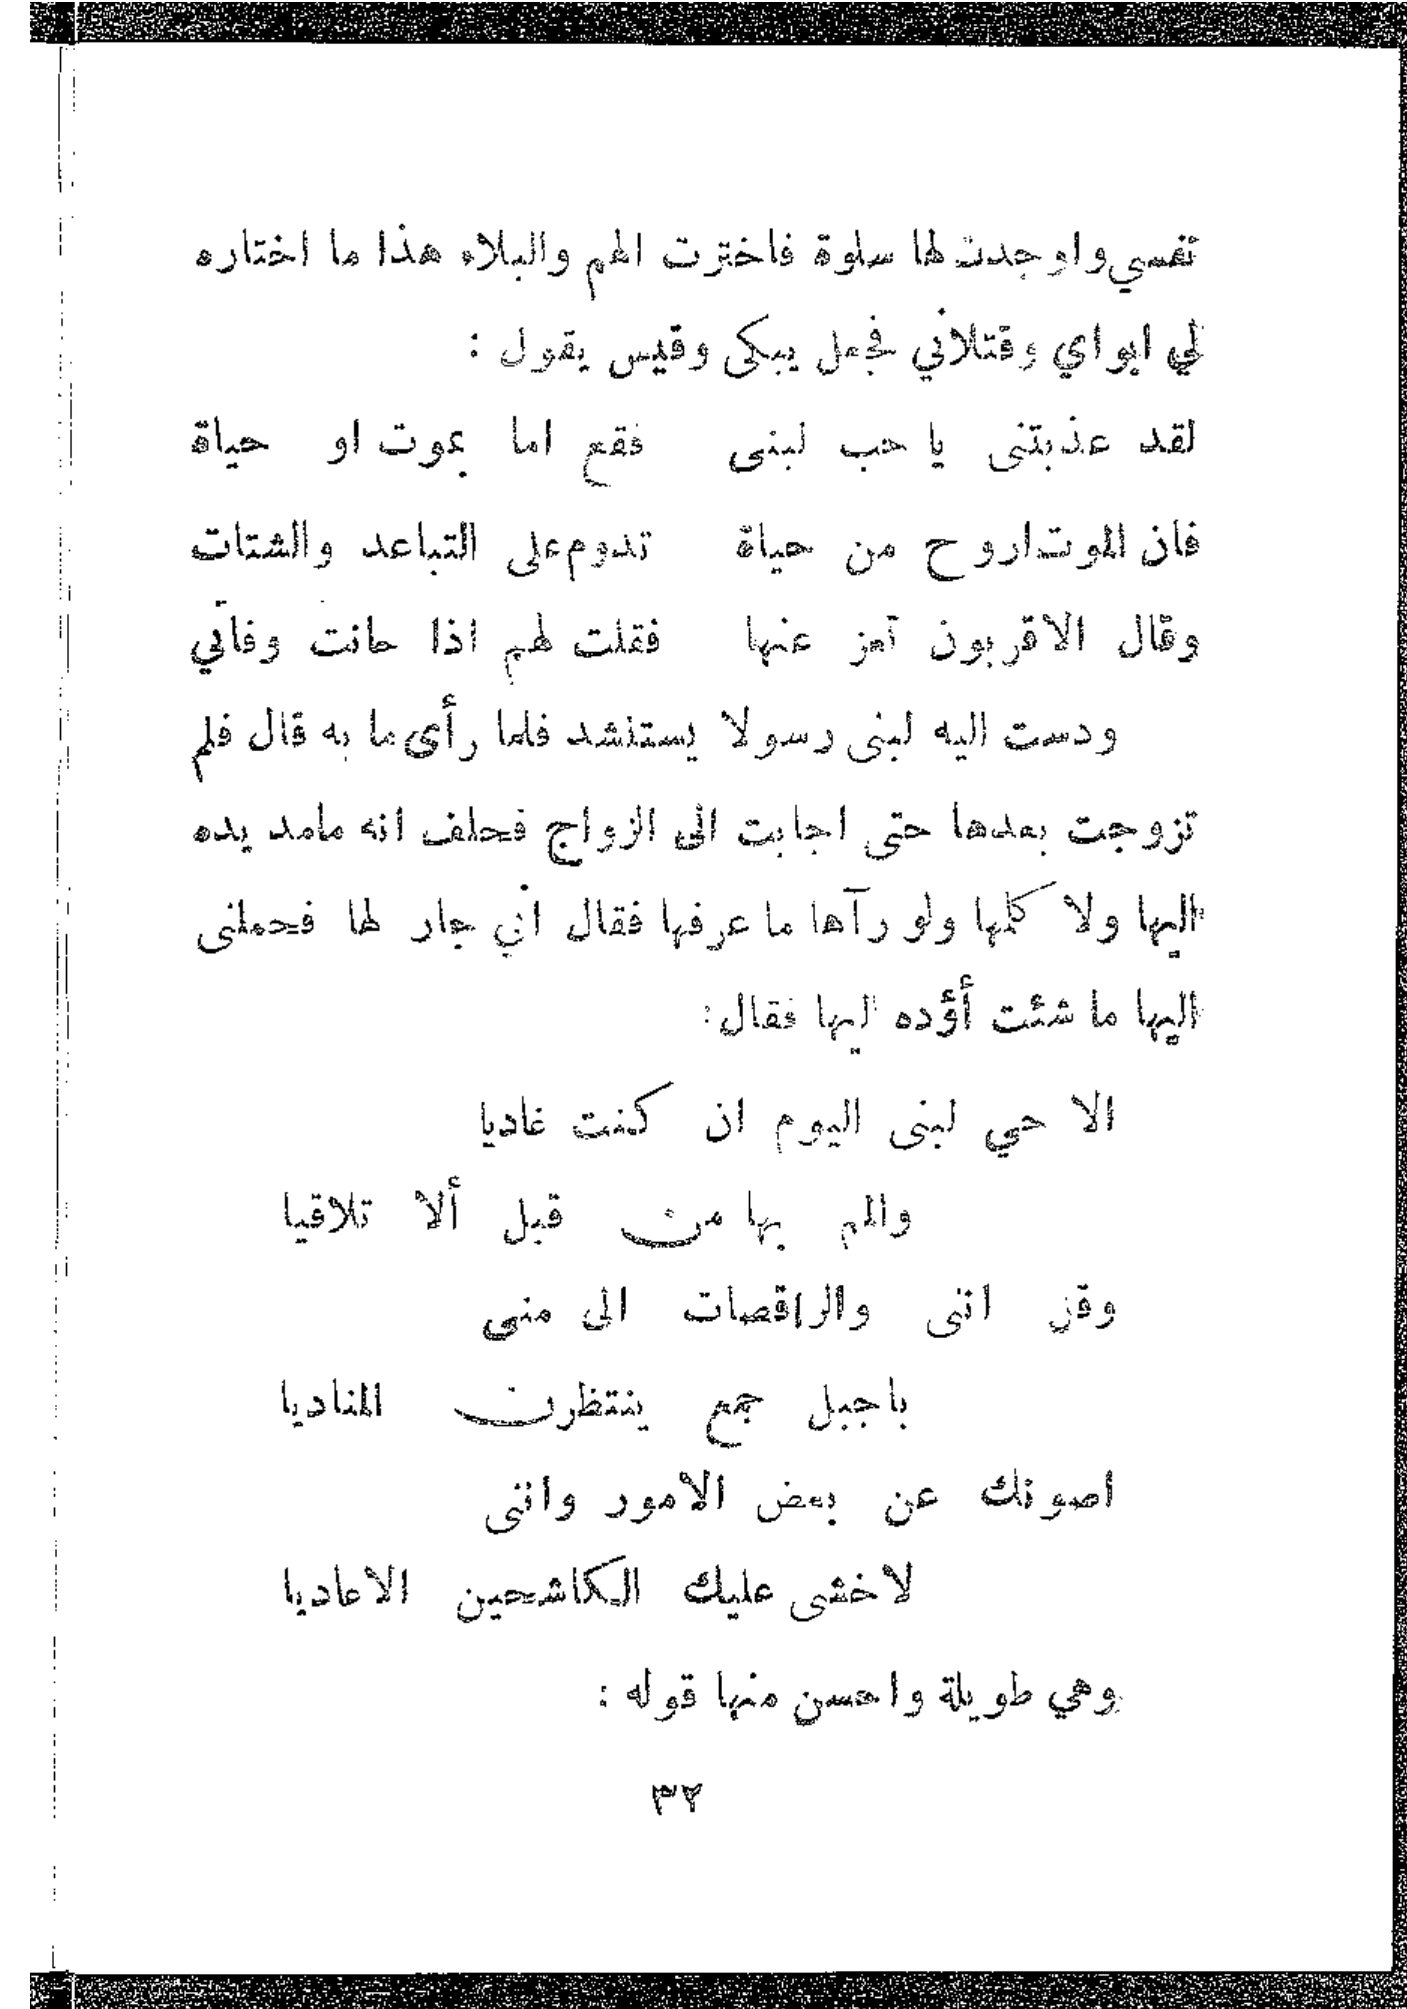 نفسي واوجدت لها سلوة فاخترت الهم والبلاء هذا ما اختاره
لي ابواي وقتلاني فجعل يبكى وقيس يقول :
لقد عذبتنى يا حب لبنى فقع اما بموت او حياة
فان الموت اروح من حياة تدوم على التباعد والشتات
وقال الاقربون تعز عنها فقلت لهم اذا حانت وفاتي
ودست اليه لبنى رسولا يستنشد فلما رأى ما به قال فلم
تزوجت بعدها حتى اجابت الى الزواج فحلف انه مامد يده
اليها ولا كلمها ولو رآها ما عرفها فقال اني جار لها فحملنى
اليها ما شئت أؤده اليها فقال:
الا حي لبنى اليوم ان كنت غاديا
والمم بها من قبل ألا تلاقيا
وقل اننى والراقصات الى منى
باجبل جمع ينتظرن المناديا
اصونك عن بعض الامور واننى
لاخشى عليك الكاشحين الاعاديا
وهي طويلة واحسن منها قوله :
٣٢